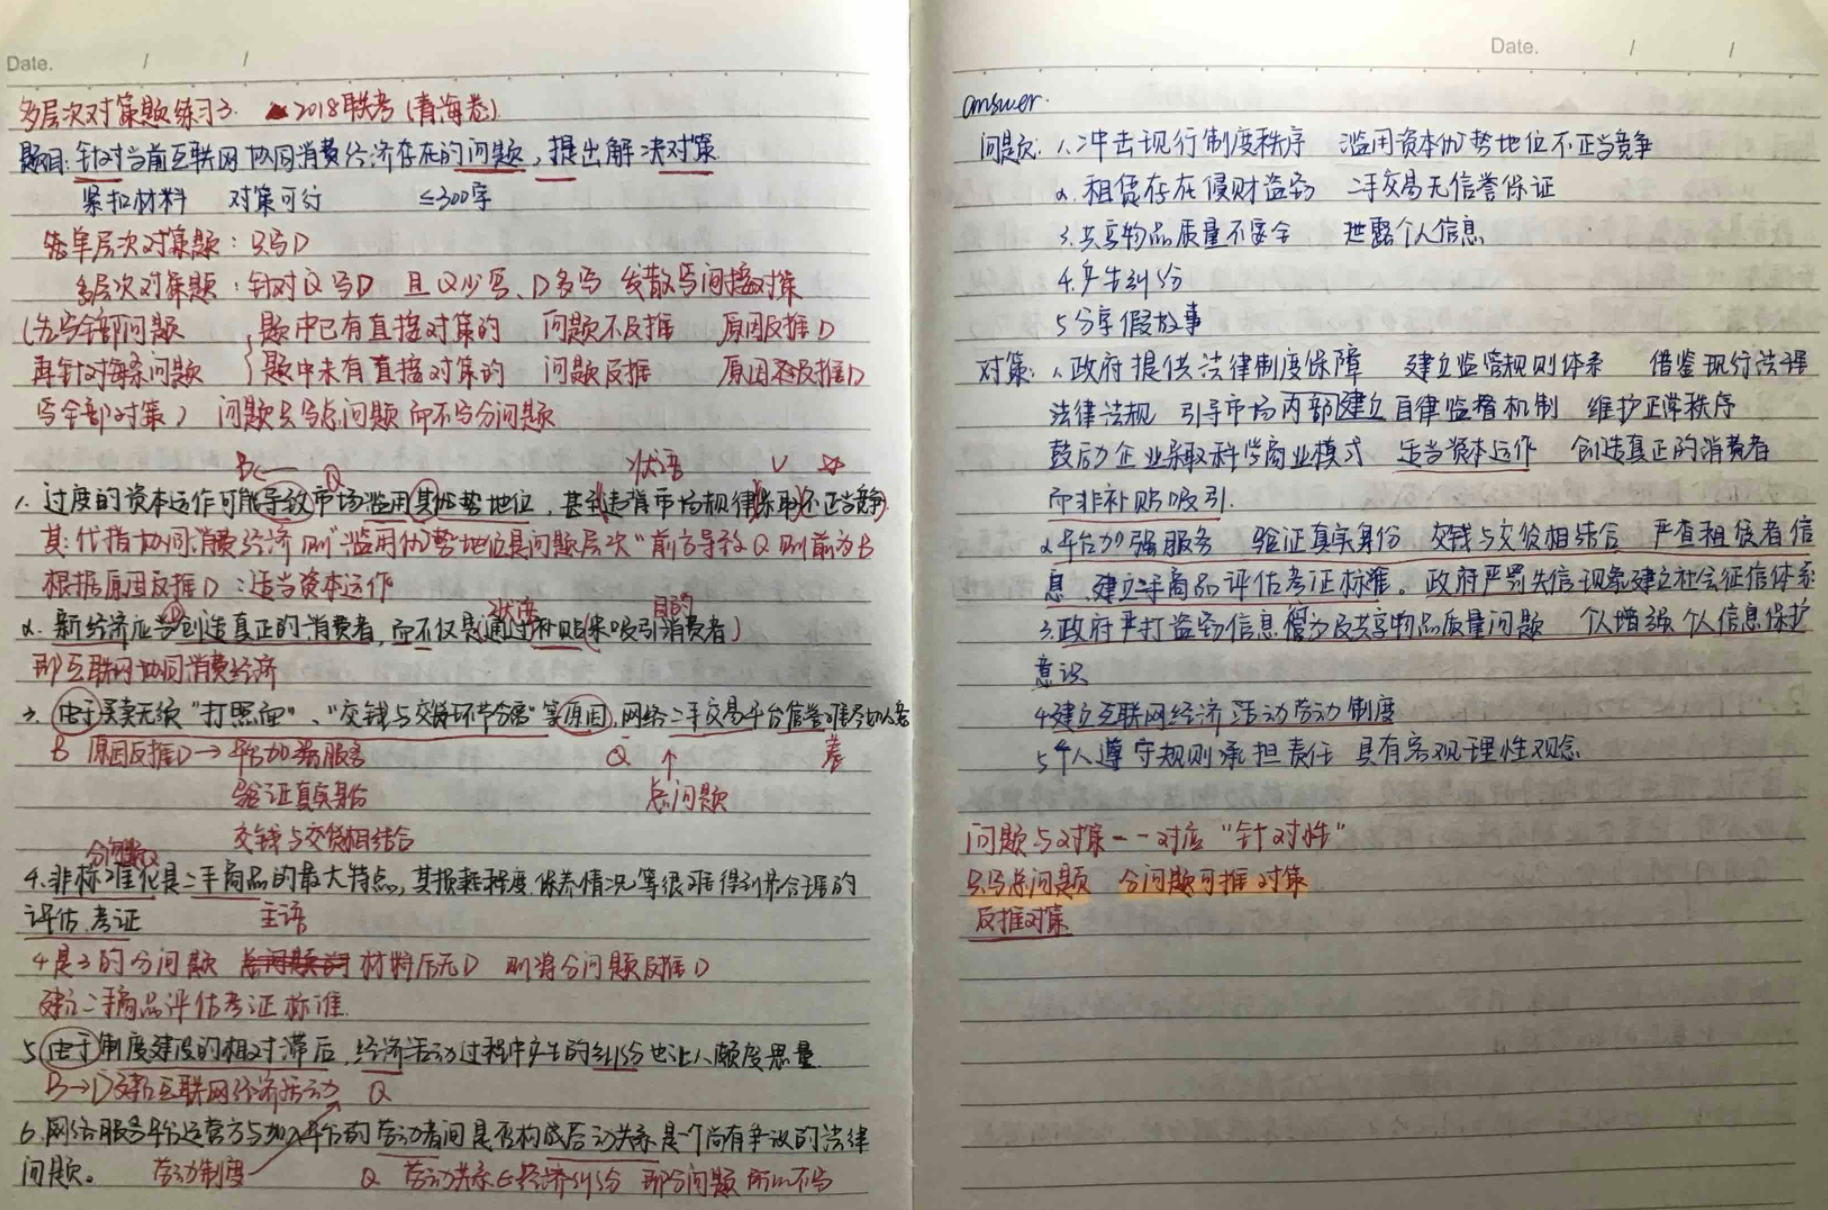 Date. / /
多层次对策题练习3. 2018联考(青海卷)
题目:针对当前互联网协同消费经济存在的问题,提出解决对策.
紧扣材料 对策可行 ≤300字
单层次对策题:只写D
多层次对策题:针对Q写D 且Q少写、D多写 发散写间接对策
(先写全部问题 题中已有直接对策的 问题不反推 原因反推D
再针对每条问题 题中未有直接对策的 问题反推 原因不反推D
写全部对策) 问题只写总问题而不写分问题
B← Q 状语 V
1. 过度的资本运作可能导致市场滥用其优势地位,甚至(违背市场规律)采取不正当竞争.
其:代指协同消费经济 则"滥用优势地位是问题层次"前方导致Q则前为B
根据原因反推D:适当资本运作
D 状语 目的
2. 新经济应当创造真正的消费者,而不仅是(通过补贴(来吸引消费者)
即互联网协同消费经济
3. 由于买卖无须"打照面"、"交钱与交货环节分离"等原因,网络二手交易平台信誉难尽如人意
B 原因反推D→平台加强服务 Q ↑ 差
验证真实身份 总问题
交钱与交货相结合
分问题Q
4. 非标准化是二手商品的最大特点,其损耗程度、保养情况等很难得到合理的
评估、考证 主语
4是3的分问题 材料后无D 则将分问题反推D
建立二手商品评估考证标准.
5 由于制度建设的相对滞后,经济活动过程中产生的纠纷也让人颇度思量.
B→D建立互联网经济活动 Q
6. 网络服务平台运营方与加入平台的劳动者间是否构成劳动关系是一个尚有争议的法律
问题。 劳动制度 Q 劳动关系∈经济纠纷 即分问题 所以不写
Date. / /
answer.
问题: 1.冲击现行制度秩序 滥用资本优势地位不正当竞争
2. 租赁存在侵财盗窃 二手交易无信誉保证
3. 共享物品质量不安全 泄露个人信息
4. 产生纠纷
5 分享假故事
对策: 1.政府提供法律制度保障 建立监管规则体系 借鉴现行法理
法律法规 引导市场内部建立自律监督机制 维护正常秩序
鼓励企业采取科学商业模式 适当资本运作 创造真正的消费者
而非补贴吸引.
2平台加强服务 验证真实身份 交钱与交货相结合 严查租赁者信
息 建立二手商品评估考证标准。政府严罚失信现象建立社会征信体系
3.政府严打盗窃信息行为及共享物品质量问题 个人增强个人信息保护
意识
4建立互联网经济活动劳动制度
5个人遵守规则承担责任 具有客观理性观念
问题与对策一一对应 "针对性"
只写总问题 分问题可推对策
反推对策